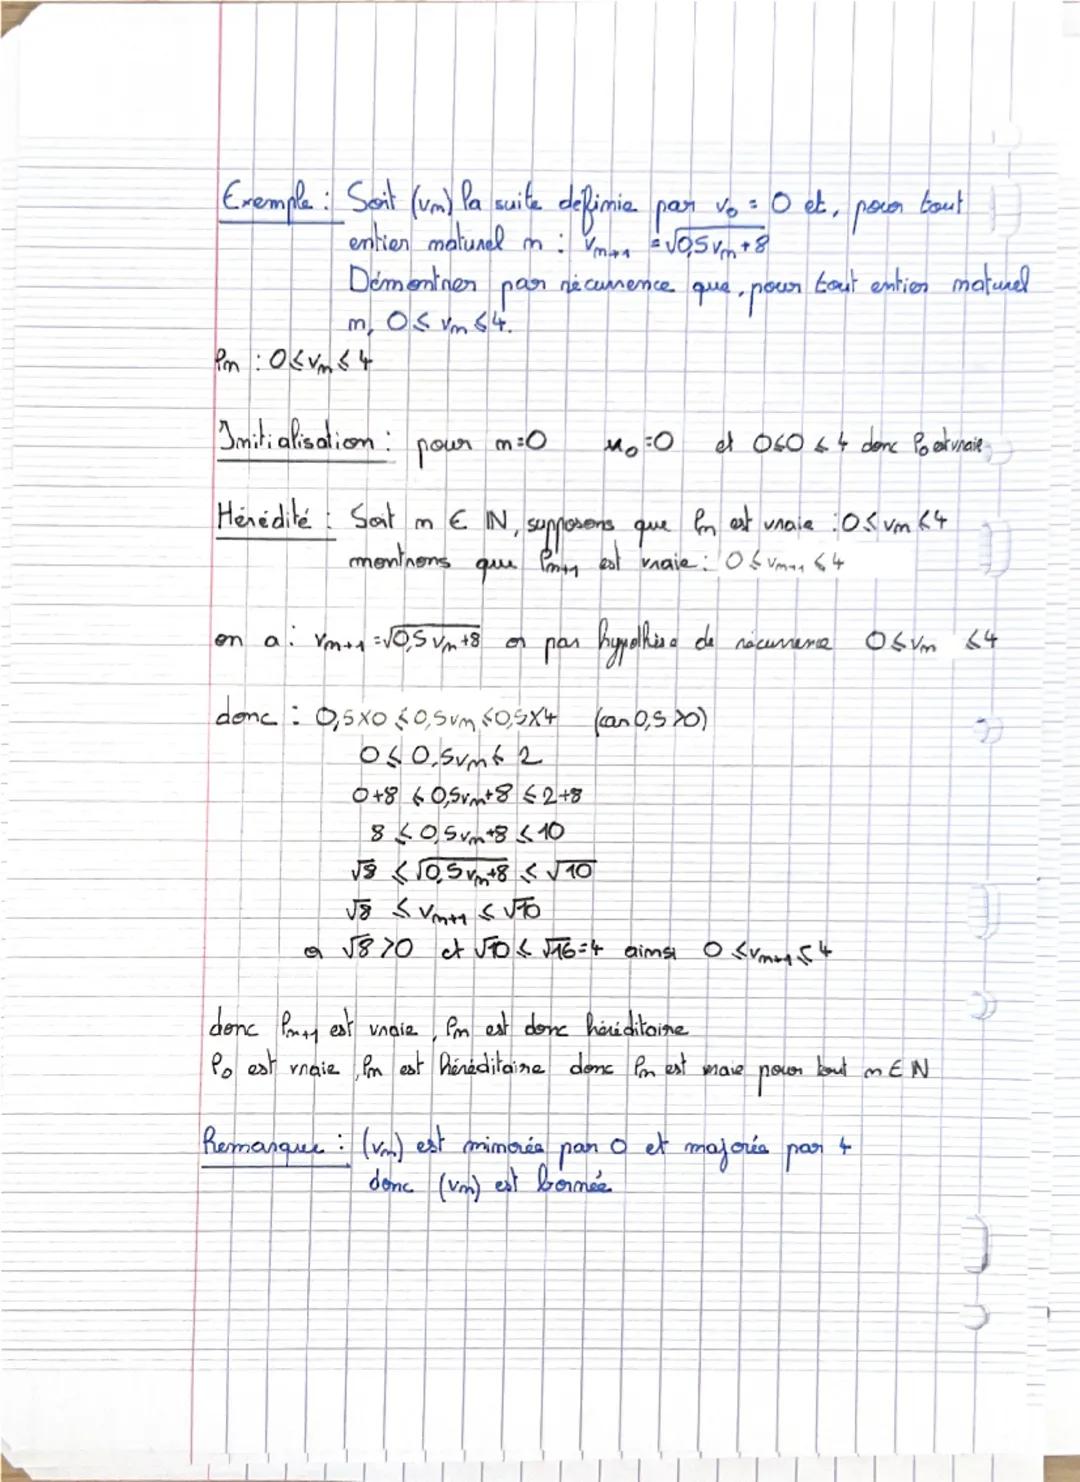 Exemple : Soit (vn) la suite définie par v₀ = 0 et, pour tout
entier naturel n : vn+1 = √0,5vn+8
Démontrer par récurrence que, pour tout entier naturel
n, 0 ≤ vn ≤ 4.
Pn : 0 ≤ vn ≤ 4
Initialisation : pour n=0 u₀=0 et 0≤0≤4 donc P₀ est vraie
Hérédité : Soit n ∈ ℕ, supposons que Pn est vraie : 0 ≤ vn ≤ 4
montrons que Pn+1 est vraie : 0 ≤ vn+1 ≤ 4
on a : vn+1 = √0,5vn+8 or par hypothèse de récurrence 0 ≤ vn ≤ 4
donc : 0,5×0 ≤ 0,5vn ≤ 0,5×4 (car 0,5>0)
0 ≤ 0,5vn ≤ 2
0+8 ≤ 0,5vn+8 ≤ 2+8
8 ≤ 0,5vn+8 ≤ 10
√8 ≤ √0,5vn+8 ≤ √10
√8 ≤ vn+1 ≤ √10
or √8 > 0 et √10 ≤ √16=4 ainsi 0 ≤ vn+1 ≤ 4
donc Pn+1 est vraie, Pn est donc héréditaire
P₀ est vraie, Pn est héréditaire donc Pn est vraie pour tout n ∈ ℕ
Remarque : (vn) est minorée par 0 et majorée par 4
donc (vn) est bornée